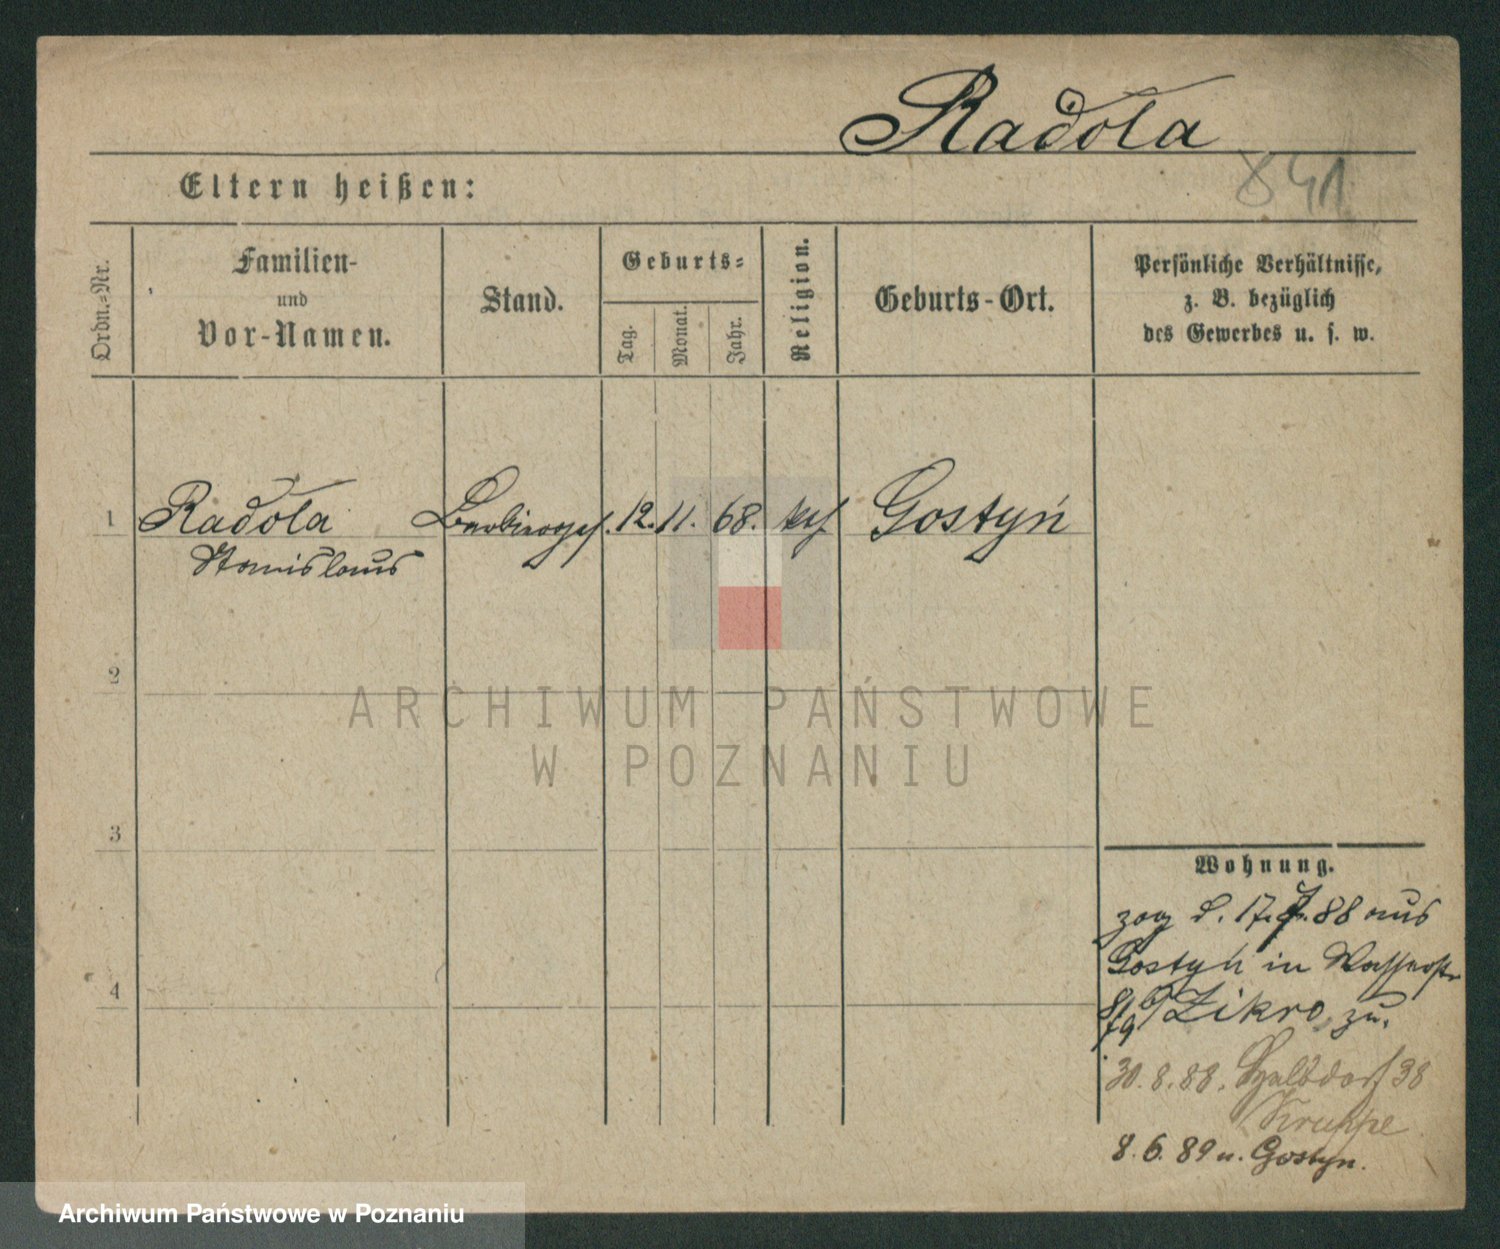 Radoła
841
Eltern heißen:
Ordn.-Nr.
Familien-
und
Vor-Namen.
Stand.
Geburts-
Tag.
Monat.
Jahr.
Religion.
Geburts-Ort.
Persönliche Verhältnisse,
z. B. bezüglich
des Gewerbes u. s. w.
1 Radoła Barbirogeh. 12. 11. 68. kath Gostyń
Stanislaus
2
ARCHIWUM PAŃSTWOWE
W POZNANIU
3
Wohnung.
zog d. 17. 7. 88 aus
Gostyn in Wasserstr
Zikro zu.
4
30. 8. 88. Halbdorf 38
Kruppe
8. 6. 89 n. Gostyn.
Archiwum Państwowe w Poznaniu